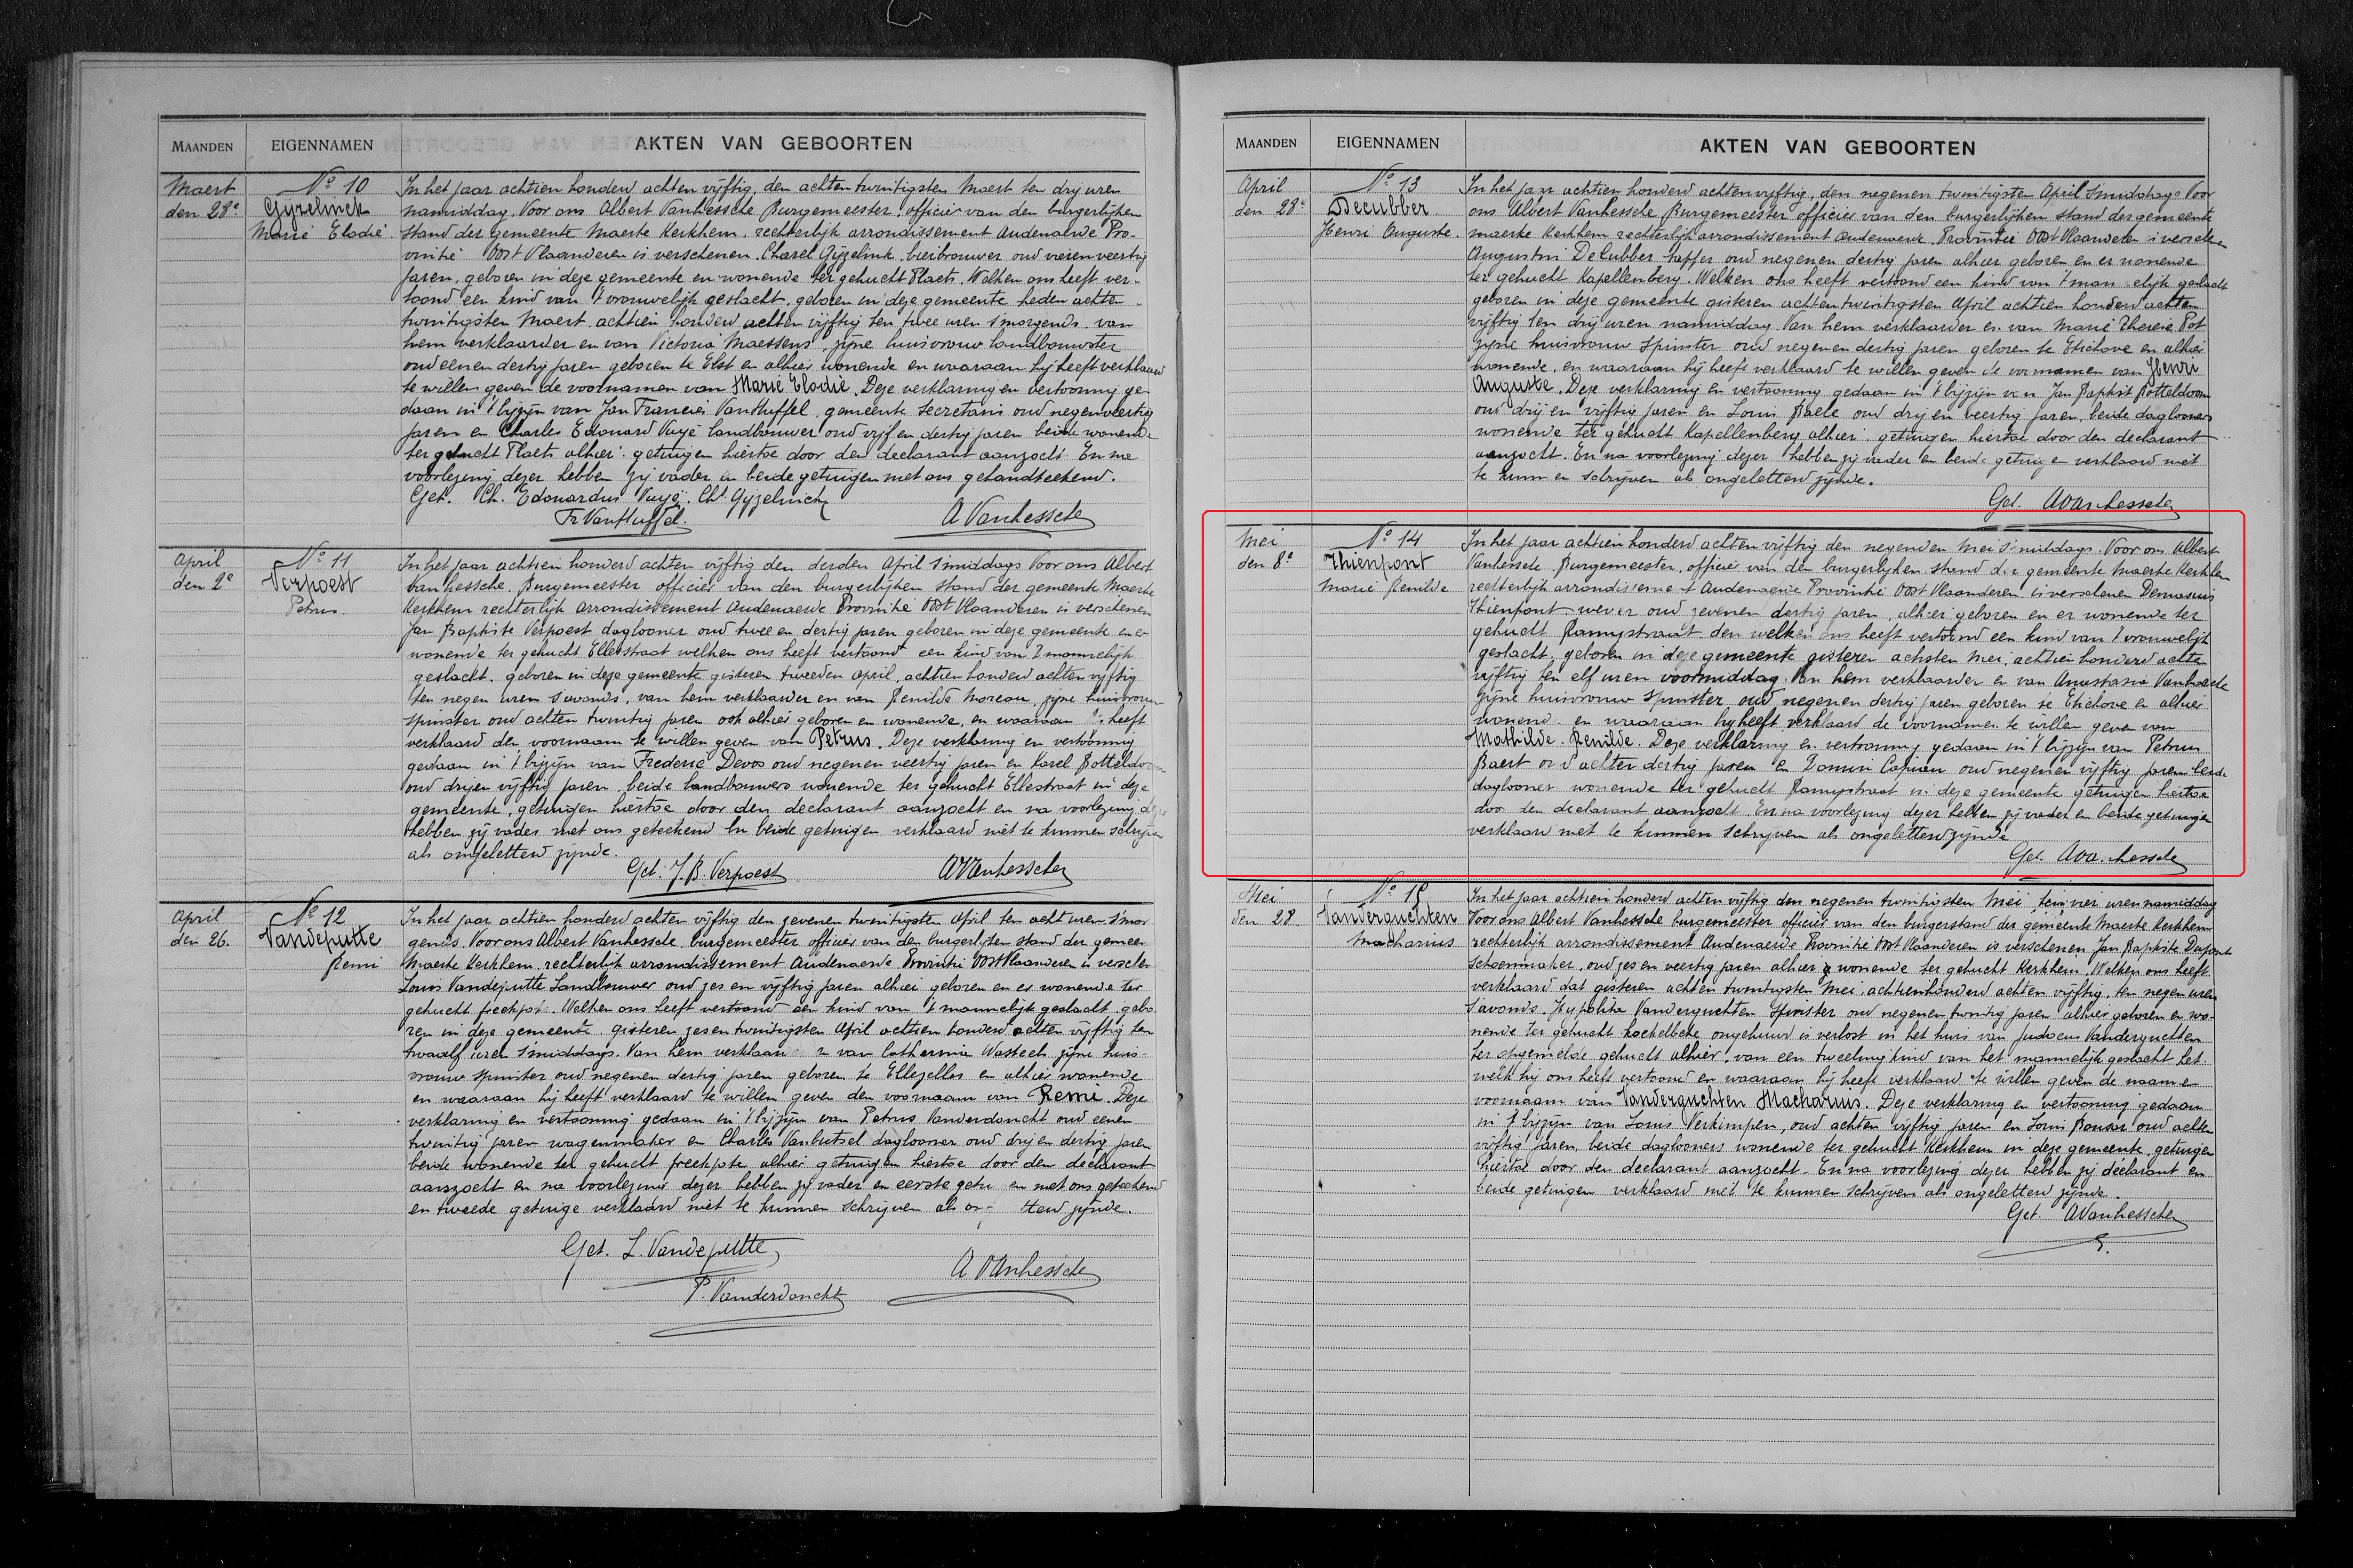 MAANDEN EIGENNAMEN AKTEN VAN GEBOORTEN
Maert
den 28e
No 10
Gyzelinck
Marie Elodie
In het jaar achtien honderd achten vijftig, den achten twintigsten Maert ten drij uren
namiddag. Voor ons Albert Vanhessche Burgemeester, officier van den burgerlijken
stand der gemeente Maerke Kerkhem, rechterlijk arrondissement Audenaerde Pro-
vintie Oost Vlaanderen is verschenen Charel Gijzelink, bierbrouwer oud vieren veertig
jaren, geboren in deze gemeente en wonende ter gehucht Plaets. Welken ons heeft ver-
toond een kind van 't vrouwelijk geslacht, geboren in deze gemeente heden achten
twintigsten Maert achtien honderd achten vijftig ten twee uren smorgends van
hem verklaarder en van Victoria Maessens, zijne huisvrouw landbouwster
oud eenen dertig jaren geboren te Elst en alhier wonende en waaraan hij heeft verklaard
te willen geven de voornamen van Marie Elodie. Deze verklaring en vertooning ge-
daan in 't bijzijn van Jan Francies Vanhuffel, gemeente secretaris oud negenveertig
jaren en Charles Edouard Vuyé landbouwer oud vijf en dertig jaren beide wonende
ter gehucht Plaets alhier getuigen hiertoe door den declarant aanzocht En na
voorlezing dezer hebben zij vader en beide getuigen met ons gehandteekend.
Get. Ch. Edouardus Vuyé. Chs Gyzelinck
Fr Vanhuffel. A Vanhessche
April
den 2e
No 11
Verpoest
Petrus.
In het jaar achtien honderd achten vijftig den derden April smiddags Voor ons Albert
van hessche, Burgemeester officier van den burgerlijken stand der gemeente Maerke
Kerkhem rechterlijk arrondissement Audenaerde Provintie Oost Vlaanderen is verschenen
Jan Baptiste Verpoest daglooner oud twee en dertig jaren geboren in deze gemeente en er
wonende ter gehucht Ellestraat welken ons heeft vertoond een kind van 't mannelijk
geslacht, geboren in deze gemeente gisteren tweeden april, achtien honderd achten vijftig
ten negen uren savonds, van hem verklaarder en van Renilde Moreau, zijne huisvrouw
spinster oud achten twintig jaren ook alhier geboren en wonende, en waaraan heeft
verklaard den voornaam te willen geven van Petrus. Deze verklaring en vertooning
gedaan in 't bijzijn van Frederic Devos oud negenen veertig jaren en Karel Botteldoorn
oud drijen vijftig jaren beide landbouwers wonende ter gehucht Ellestraat in deze
gemeente, getuigen hiertoe door den declarant aanzocht en na voorlezing dezer
hebben zij vader met ons geteekend en beide getuigen verklaard niet te kunnen schrijven
als ongeletterd zijnde.
Get. J. B. Verpoest AVanhessche
April
den 26.
No 12
Vandeputte
Remi
In het jaar achtien honderd achten vijftig den zevenen twintigsten April ten acht uren smor
gends. Voor ons Albert Vanhessche, burgemeester officier van den burgerlijken stand der gemeen
Maerke Kerkhem rechterlijk arrondissement Audenaerde Provintie Oost Vlaanderen is verschen
Louis Vandeputte Landbouwer oud zes en vijftig jaren alhier geboren en er wonende ter
gehucht freekpot. Welken ons heeft vertoond een kind van 't mannelijk geslacht, gebo-
ren in deze gemeente gisteren zesen twintigsten April achtien honderd achten vijftig ten
twaalf uren smiddags. Van hem verklaar en van Catherina Wasteels zijne huis-
vrouw spinster oud negenen dertig jaren geboren te Ellezelles en alhier wonende
en waaraan hij heeft verklaard te willen geven den voornaam van Remi. Deze
verklaring en vertooning gedaan in 't bijzijn van Petrus Vanderdonckt oud eenen
twintig jaren wagenmaker en Charles Vanhutsel daglooner oud drij en dertig jaren
beide wonende ter gehucht freekpote alhier getuigen hiertoe door den declarant
aanzocht en na voorlezing dezer hebben zij vader en eerste getu en met ons geteekend
en tweede getuige verklaard niet te kunnen schrijven als on tterd zijnde.
Get. L. Vandeputte
A Vanhessche
P. Vanderdonckt
MAANDEN EIGENNAMEN AKTEN VAN GEBOORTEN
April
den 28e
No 13
Decubber.
Henri Auguste.
In het jaar achtien honderd achtenvyftig, den negenen twintigsten April smiddags Voor
ons Albert Vanhessche Burgemeester officier van den burgerlijken stand der gemeente
Maerke Kerkhem rechterlijk arrondissement Audenaerde Provintie Oost Vlaanderen is verschenen
Augustin Decubber oud negenen dertig jaren alhier geboren en er wonende
ter gehucht Kapellenberg. Welken ons heeft vertoond een kind van 't man elijk geslacht
geboren in deze gemeente gisteren achten twintigsten April achtien honderd achten
vijftig ten drij uren namiddag Van hem verklaarder en van Marie Therese Pot
zijne huisvrouw spinster oud negenen dertig jaren geboren te Etichove en alhier
wonende, en waaraan hij heeft verklaard te willen geven de vornamen van Henri
Auguste. Deze verklaring en vertooning gedaan in 't bijzijn van Jan Baptist Botteldoorn
oud drij en vijftig jaren en Louis Baele oud drij en veertig jaren, beide daglooners
wonende ter gehucht Kapellenberg alhier getuigen hiertoe door den declarant
aanzocht. En na voorlezing dezer hebben zij vader en beide getuigen verklaard niet
te kunnen schrijven als ongeletterd zijnde.
Get. AVanhessche
Mei
den 8e
No 14
Thienpont
Marie Renilde
In het jaar achtien honderd achten vijftig den negenden Mei s' middags Voor ons Albert
Vanhessche Burgemeester, officier van den burgerlijken stand der gemeente Maerke Kerkhem
rechterlijk arrondissement Audenaerde Provintie Oost Vlaanderen is verschenen Demasius
Thienpont wever oud zevenen dertig jaren, alhier geboren en er wonende ter
gehucht Rampstraat den welken ons heeft vertoond een kind van 't vrouwelijk
geslacht, geboren in deze gemeente gisteren achsten Mei, achtien honderd achten
vijftig ten elf uren voormiddag. Van hem verklaarder en van Anastasia Vanhaecke
zijne huisvrouw spinster oud negenen dertig jaren geboren te Etichove en alhier
wonend en waaraan hij heeft verklaard de voornamen te willen geven van
Mathilde. Renilde. Deze verklaring en vertooning gedaan in 't bijzijn van Petrus
Baert oud achten dertig jaren en Domin Capiau oud negenen vijftig jaren beide
daglooner wonende ter gehucht Rampstraat in deze gemeente getuigen hiertoe
door den declarant aanzocht. En na voorlezing dezer hebben zij vader en beide getuigen
verklaard niet te kunnen schrijven als ongeletterd zijnde
Get. AVanhessche
Mei
den 28.
No 15
Vanderguchten
Macharius
In het jaar achtien honderd achten vijftig den negenen twintigsten Mei ten vier uren namiddag
Voor ons Albert Vanhessche burgemeester officier van den burgerstand der gemeente Maerke Kerkhem
rechterlijk arrondissement Audenaerde Provintie Oost Vlaanderen is verschenen Jan Baptiste Dupont
schoenmaker, oud zes en veertig jaren alhier wonende ter gehucht Kerkhem. Welken ons heeft
verklaard dat gisteren achten twintigsten Mei achtienhonderd achten vijftig, ten negen uren
s'avonds. Hypolita Vanderguchten spinster oud negenen twintig jaren alhier geboren en wo-
nende ter gehucht Kockelbeke ongehuwd is verlost in het huis van Judocus Vanderguchten
ter opgemelde gehucht alhier, van een tweeling kind van het mannelijk geslacht het
welk hij ons heeft vertoond en waaraan hij heeft verklaard te willen geven de naam en
voornaam van Vanderguchten Macharius. Deze verklaring en vertooning gedaan
in 't bijzijn van Louis Verkimpen, oud achten vijftig jaren en Louis Bauwr oud achten
vijftig jaren, beide daglooners wonende ter gehucht Kerkhem in deze gemeente, getuigen
hiertoe door den declarant aanzocht. En na voorlezing dezer hebben zij declarant en
beide getuigen verklaard niet te kunnen schrijven als ongeletterd zijnde.
Get. AVanhessche